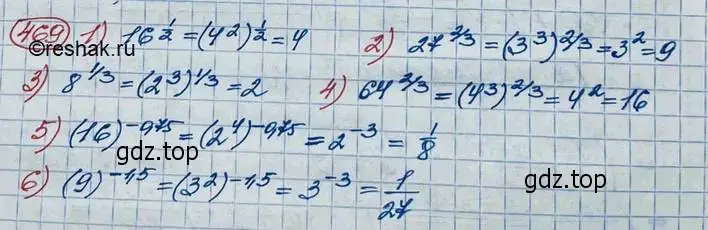 469 1) 16^(1/2) = (4²)^(1/2) = 4 2) 27^(2/3) = (3³)^(2/3) = 3² = 9
©reshak.ru
3) 8^(1/3) = (2³)^(1/3) = 2 4) 64^(2/3) = (4³)^(2/3) = 4² = 16
5) (16)^(-0,75) = (2⁴)^(-0,75) = 2^(-3) = 1/8
gdz.top
6) (9)^(-1,5) = (3²)^(-1,5) = 3^(-3) = 1/27
gdz.top